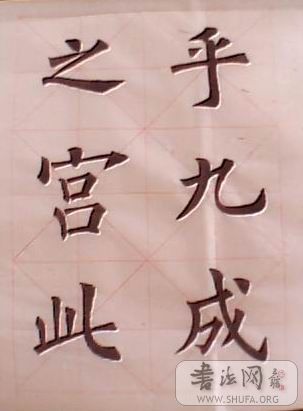 乎九成
之宫此
书法网
WWW.SHUFA.ORG